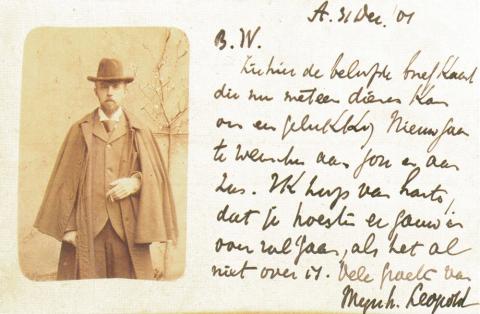 A. 31 Dec. '01
B. W.
Ziehier de beloofde briefkaart
die nu meteen dienen kan
om een gelukkig Nieuwjaar
te wenschen aan jou en aan
Zus. Ik hoop van harte,
dat je hoesten er gauw is
over zal gaan, als het al
niet over is. Vele groeten van
Mynh. Leopold